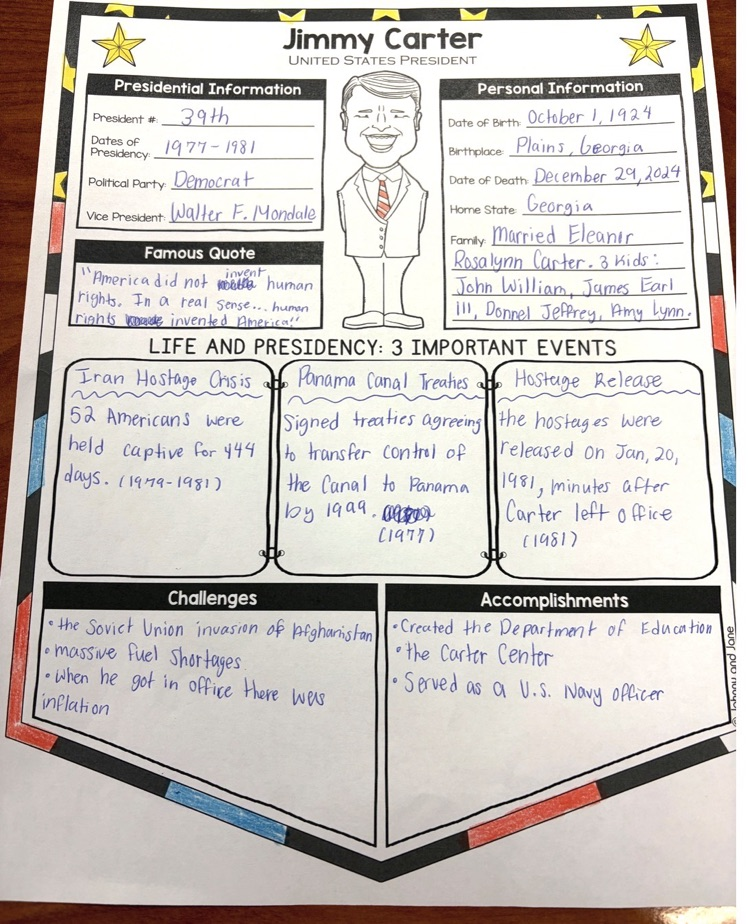 Jimmy Carter
UNITED STATES PRESIDENT
Presidential Information
President #: 39th
Dates of
Presidency: 1977-1981
Political Party: Democrat
Vice President: Walter F. Mondale
Famous Quote
"America did not invent human
rights. In a real sense... human
rights invented America!"
Personal Information
Date of Birth: October 1, 1924
Birthplace: Plains, Georgia
Date of Death: December 29, 2024
Home State: Georgia
Family: Married Eleanir
Rosalynn Carter. 3 kids:
John William, James Earl
III, Donnel Jeffrey, Amy Lynn.
LIFE AND PRESIDENCY: 3 IMPORTANT EVENTS
Iran Hostage Crisis
52 Americans were
held captive for 444
days. (1979-1981)
Panama Canal Treaties
Signed treaties agreeing
to transfer control of
the Canal to Panama
by 1999.
(1977)
Hostage Release
the hostages were
released on Jan, 20,
1981, minutes after
Carter left office
(1981)
Challenges
• the Soviet Union invasion of Afghanistan
• massive fuel shortages
• When he got in office there was
inflation
Accomplishments
• Created the Department of Education
• the Carter Center
• Served as a U.S. Navy officer
© Johnny and Jane